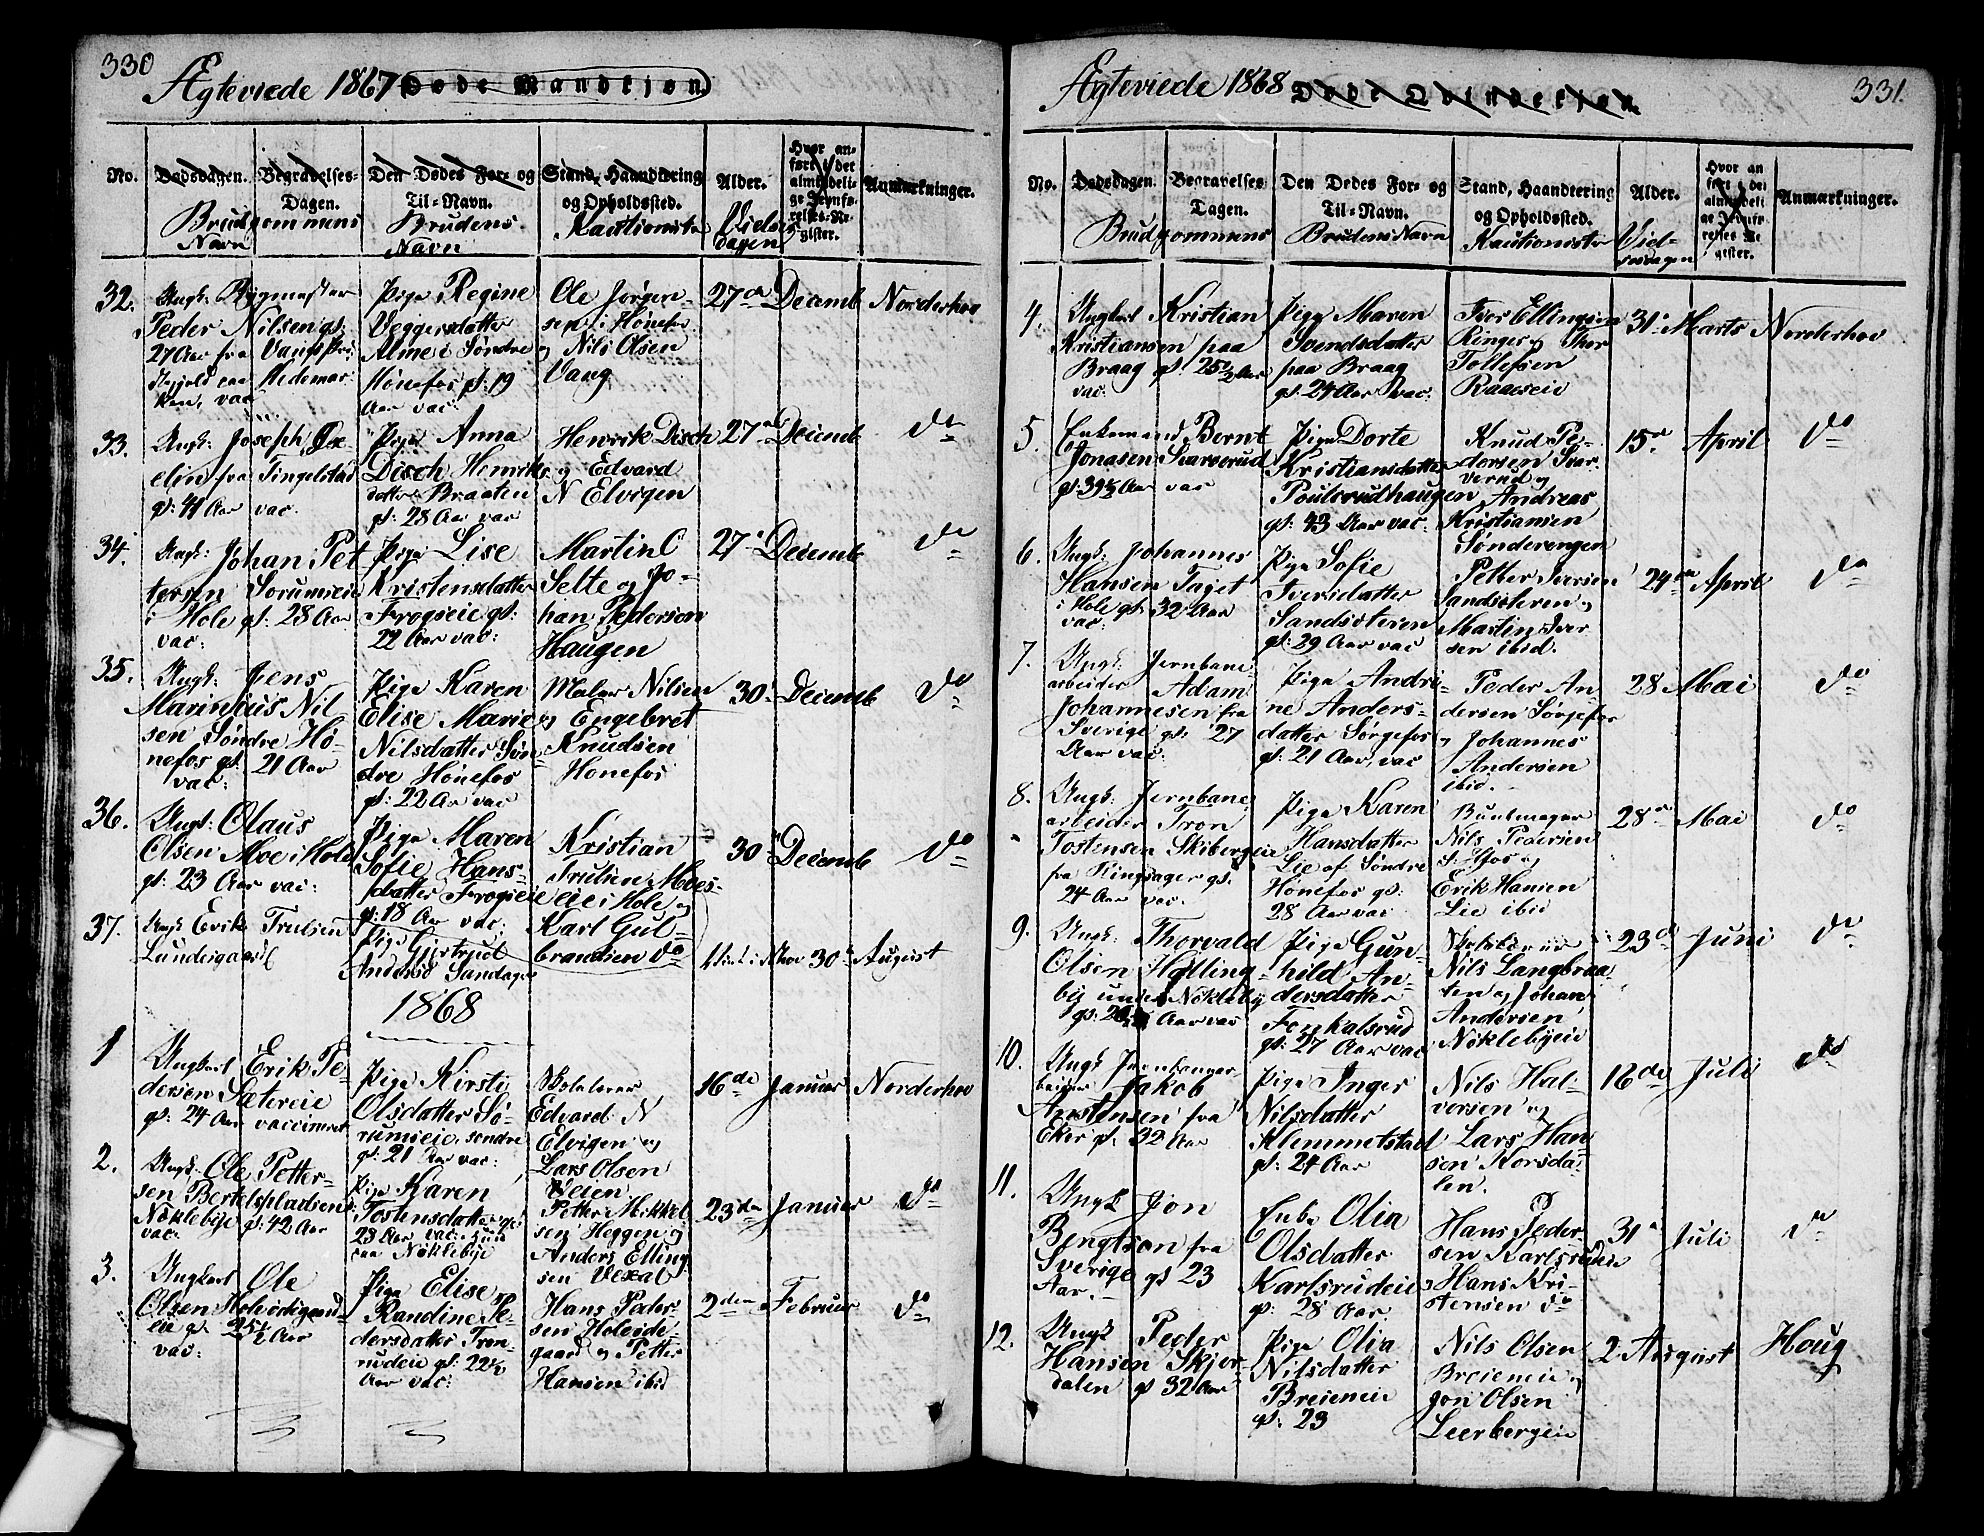 330
Ægteviede 1867 Døde Mandkjøn
No.
Dødsdagen.
Begravelses-
Dagen.
Den Dødes For- og
Til-Navn.
Stand, Haandtering
og Opholdssted.
Alder.
Hvor an-
ført i det
almindeli-
ge Jevnfø-
relses-Re-
gister.
Anmærkninger.
Brudgommens
Navn
Brudens
Navn
Kautionister
Vielses
dagen
32.
Ungk: Bygmester
Peder Nilsen gs:
27 Aar fra Vangs
Hedemar-
ken, vac
Pige Regine
Veggersdatter
Alme i Søndre
Hønefos gs: 19
Aar vac:
Ole Jørgen-
sen i Hønefos
og Nils Olsen
Vang
27de Decemb
Norderhov
33.
Ungk: Joseph
elin fra Tingelstad
gs: 41 Aar vac.
Pige Anna
Disch Henriks
datter Braaten
gs: 28 Aar vac
Henrik Disch
og Edvard
N Elvigen
27de Decemb
do
34.
Ungk: Johan Pet
tersen Sørumseie
i Hole gs: 28 Aar
vac:
Pige Lise
Kristensdatter
Frogseie gs:
22 Aar vac:
Martin O
Selte og Jo-
han Pedersen
Haugen
27 Decemb
do
35.
Ungk: Jens
Marinsius Nil
sen Søndre Hø-
nefos gs: 21 Aar
vac:
Pige Karen
Elise Marie
Nilsdatter Søn
dre Hønefos
gs: 22 Aar vac
Maler Nilsen
og Engebret
Knudsen
Honefos
30 Decemb
do
36.
Ungk: Olaus
Olsen Moe i Hole
gs: 23 Aar vac:
Pige Maren
Sofie Hans-
datter Frogseie
gs: 18 Aar vac:
Kristian
Trulsen Moes-
eie i Hole og
Karl Gul-
brandsen do
30 Decemb
do
37.
Ungk Erik Trulsen
Lundergaard
Pige Gjertrud
Andersd Sandager
30 August
1868
1
Ungkarl Erik Pe-
dersen Sætereie
gs: 24 Aar vaccineret
Pige Kirsti
Olsdatter Sø-
rumseie, søndre
gs: 21 Aar vac:
Skolelærer
Edvard N
Elvigen og
Lars Olsen
Veien
16de Januar
Norderhov
2.
Ungk: Ole Petter-
sen Bertelspladsen
Nøklebye gs: 42 Aar
vac:
Pige Karen
Tostensdatter gs:
23 Aar vac:
Nøklebye
Petter Mikkel
sen Heggen og
Anders Elling
sen Vexal
23de Januar
do
3.
Ungkarl Ole
Olsen Hohordtgaard-
eie gs. 25 1/2 Aar
vac:
Pige Elise
Randine Pe-
dersdatter Tron-
rudeie gs: 22 1/2
Aar vac:
Hans Peder-
sen
gaard og Petter
Hansen ibid
2den Februar
do
331.
Ægteviede 1868 Døde Qvindekjøn
No.
Dødsdagen.
Begravelses
Dagen.
Den Dødes For- og
Til-Navn.
Stand, Haandtering
og Opholdssted.
Alder.
Hvor an
ført i det
almindeli
ge Jevnfø-
relses Re-
gister.
Anmærkninger.
Brudgommens
Brudens Navn
Kautionister
Viel-
sesdagen
4.
Ungkarl Kristian
Kristiansen paa
Braag gs 25 1/2 Aar
vac:
Pige Maren
Svendsdatter
paa Braag
gs: 24 Aar vac:
Iver Ellingsen
Ringer og Thor
Tollefsen
Raaeseie
31 Marts
Norderhov
5.
Enkemand Bernt
Jonasen Svarverud
gs: 39 1/2 Aar vac
Pige Dorte
Kristiansdatter
Poulsrudhaugen
gs: 43 Aar vac:
Knud Pe-
dersen Svar
verud og
Andreas
Kristiansen
Sønderengen
15de April
do
6.
Ungk: Johannes
Hansen Taget
i Hole gs 32 Aar
vac:
Pige Sofie
Iversdatter
Sandsøteren
gs: 29 Aar vac
Petter Iversen
Sandsøteren og
Martin Iver
sen ibid.
24de April
do
7.
Ungk: Jernbane
arbeider Adam
Johannesen fra
Sverige gs: 27
Aar vac:
Pige Andri-
ne Anders-
datter Sørgefos
gs: 21 Aar, vac
Peder An
dersen Sørgefos
og Johannes
Andersen
ibid.
28 Mai
do
8.
Ungk: Jernbane
arbeider Tron
Tostensen Skibergeie
fra Ringsager gs.
24 Aar vac.
Pige Karen
Hansdatter
Lie af Søndre
Hønefos gs:
28 Aar vac
Buntmager
Nils Pedersen
S. Hfos og
Erik Hansen
Lie ibid
28de Mai
do
9.
Ungk: Thorvald
Olsen Hølling-
by under Nøkleby
Aar vac
Pige Gun-
hild An-
dersdatter
Fenkalsrud
gs: 27 Aar vac
Skolelærer
Nils Langbraa
ten og Johan
Andersen
Nøklebyeie
23de Juni
do
10.
Ungk Jernbanear-
beider Jakob
Anstensen fra
Eker gs. 32 Aar
Pige Inger
Nilsdatter
Klemmetstad
gs: 24 Aar
Nils Hal-
versen og
Lars Han-
sen Korsda-
len.
18de Juli
do
11.
Ungk Jon
Bengtson fra
Sverige gs 23
Aar.
Enke Olia
Olsdatter
Karlsrudeie
gs: 28 Aar.
Hans Peder
sen Karlsrudeie
og Hans Kri-
stensen do
31 Juli
do
12.
Ungk Peder
Hansen Skjør-
dalen gs 32 Aar
Pige Olia
Nilsdatter
Breieneie
gs: 23
Nils Olsen
Breieneie og
Jon Olsen
Leerbergeie
2 August
Houg